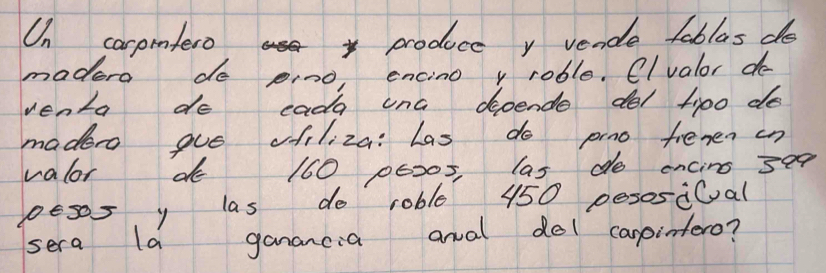 Un carpintero produce y vende tablas de
madera de pino, encino y roble. El valor de
venta de cada una depende del tipo de
madera que utiliza: Las de pino tienen un
valor de 160 pesos, las de encino 399
pesos y las de roble 450 pesos ¿Cual
sera la ganancia anual del carpintero?